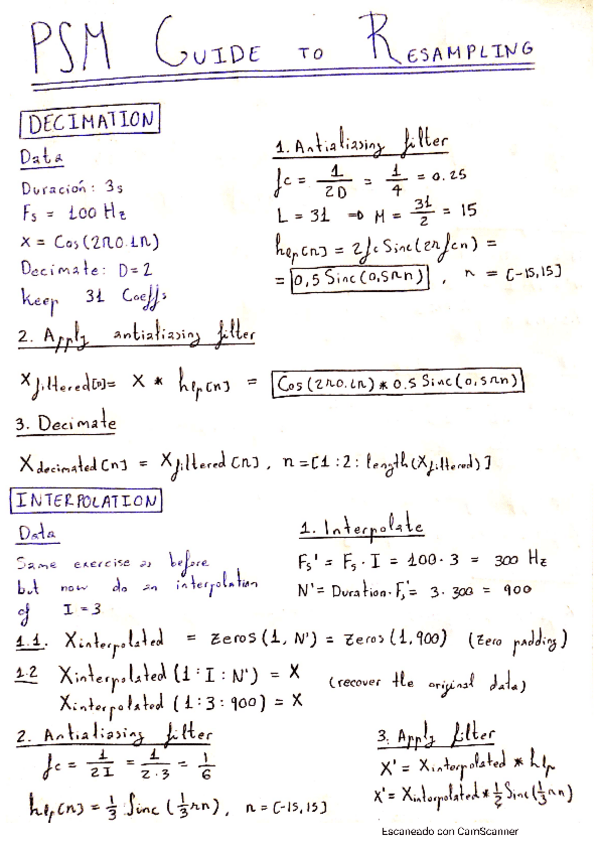 PSM GUIDE TO RESAMPLING
DECIMATION
Data
Duración: 3s
Fs = 100 Hz
x = Cos(2π0.1n)
Decimate: D=2
Keep 31 Coeffs
1. Antialiasing filter
fc = 1/2D = 1/4 = 0.25
L = 31 ⇒ M = 31/2 = 15
hlp[n] = 2fc Sinc(2πfcn) =
= 0,5 Sinc(0,5πn) , n = [-15,15]
2. Apply antialiasing filter
Xfiltered[n] = X * hlp[n] = Cos(2π0.1n) * 0.5 Sinc(0,5πn)
3. Decimate
Xdecimated[n] = Xfiltered[n] , n=[1:2:length(Xfiltered)]
INTERPOLATION
Data
Same exercise as before
but now do an interpolation
of I = 3
1. Interpolate
Fs' = Fs · I = 100 · 3 = 300 Hz
N' = Duration · Fs' = 3 · 300 = 900
1.1. Xinterpolated = zeros(1, N') = zeros(1,900) (zero padding)
1.2 Xinterpolated (1:I:N') = X
Xinterpolated (1:3:900) = X
(recover the original data)
2. Antialiasing filter
fc = 1/2I = 1/2·3 = 1/6
hlp[n] = 1/3 · Sinc(1/3πn), n = [-15,15]
3. Apply filter
X' = Xinterpolated * hlp
X' = Xinterpolated * 1/2 Sinc(1/3πn)
Escaneado con CamScanner